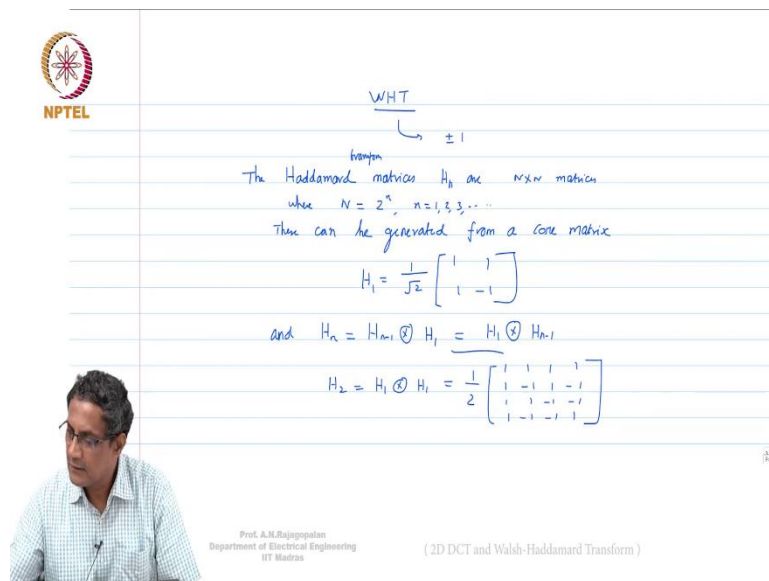 NPTEL
WHT
± 1
transform
The Haddamard matrices Hn are N×N matrices
where N = 2^n, n = 1, 2, 3, .....
These can be generated from a core matrix
H1 = 1/√2 [ 1 1
1 -1 ]
and Hn = Hn-1 ⊗ H1 = H1 ⊗ Hn-1
H2 = H1 ⊗ H1 = 1/2 [ 1 1 1 1
1 -1 1 -1
1 1 -1 -1
1 -1 -1 1 ]
Prof. A.N.Rajagopalan
Department of Electrical Engineering
IIT Madras
( 2D DCT and Walsh-Haddamard Transform )